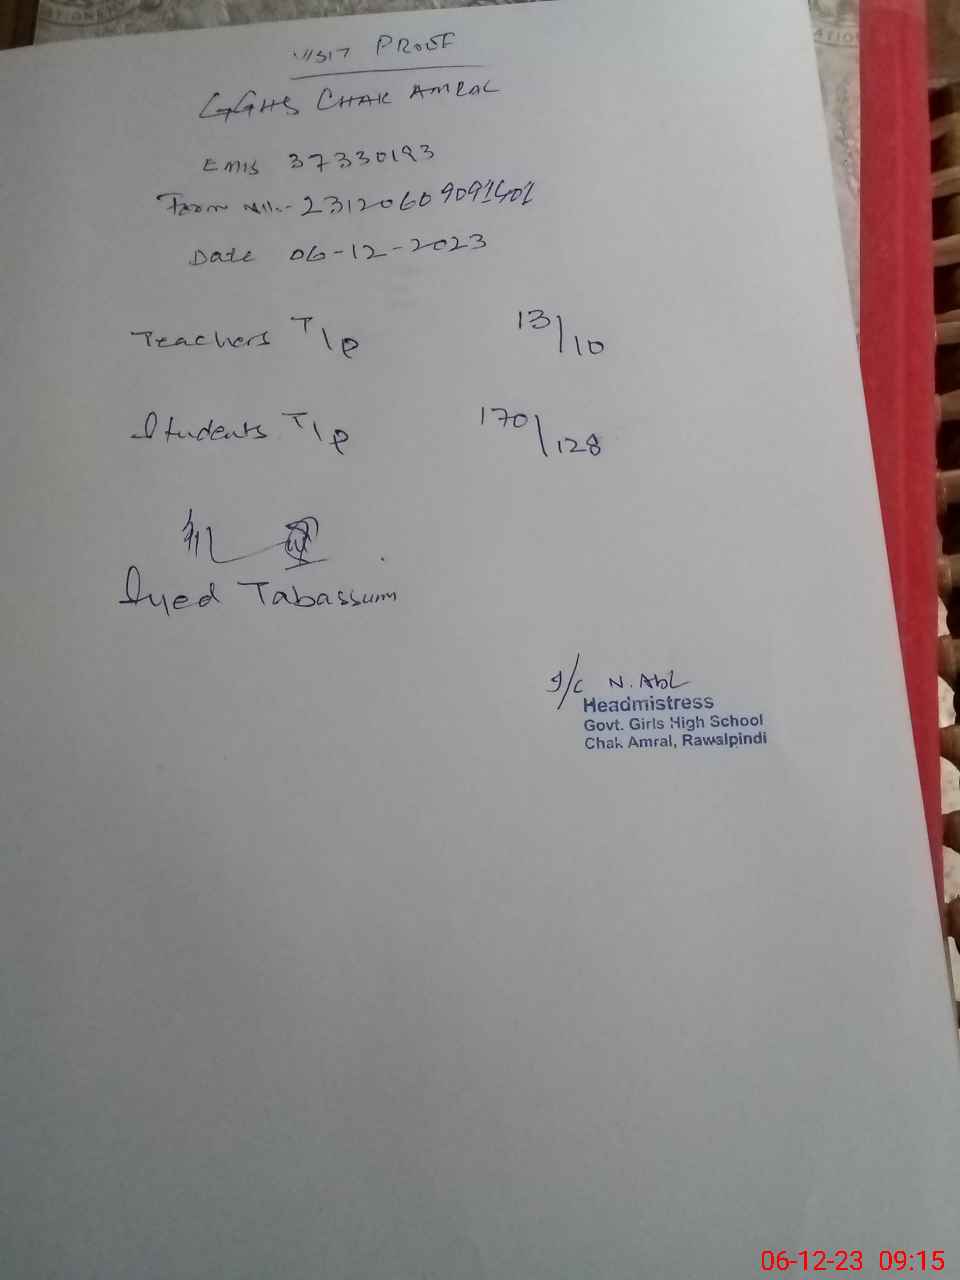 VISIT PROOF
GGHS CHAK AMRAL
EMIS 37330193
Form No:- 23120609091401
Date 06-12-2023
Teachers T/P 13/10
Students T/P 170/128
Syed Tabassum
I/C
Headmistress
Govt. Girls High School
Chak Amral, Rawalpindi
06-12-23 09:15